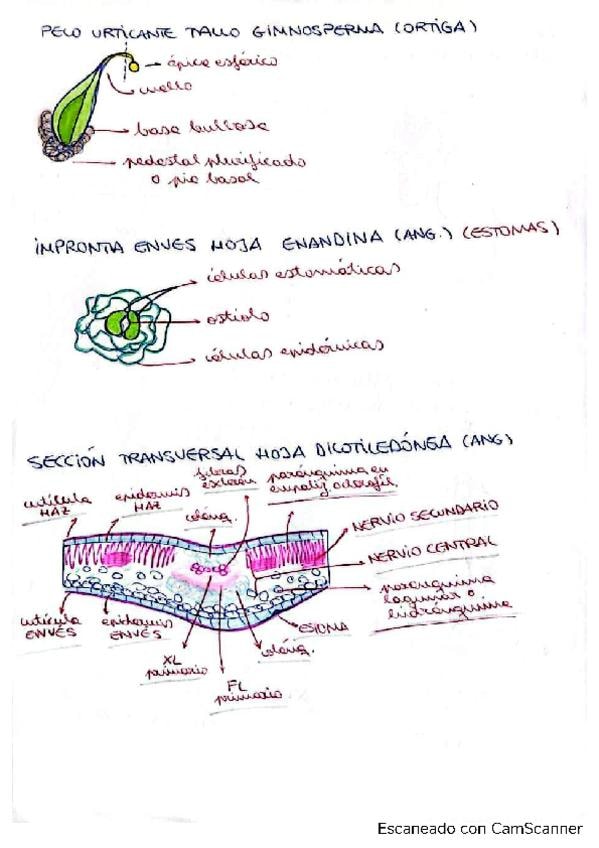 PELO URTICANTE TALLO GIMNOSPERMA (ORTIGA)
ápice esférico
cuello
base bullosa
pedestal plurificado
o pie basal
IMPRONTA ENVES HOJA ENANDINA (ANG.) (ESTOMAS)
células estomáticas
ostiolo
células epidérmicas
SECCIÓN TRANSVERSAL HOJA DICOTILEDÓNEA (ANG)
cutícula
HAZ
epidermis
HAZ
coléng.
fibras
parénquima en
empalij clorofíl.
NERVIO SECUNDARIO
NERVIO CENTRAL
parénquima
lagunar o
cutícula
ENVÉS
epidermis
ENVÉS
XL
primario
FL
primario
coléng.
ESTOMA
Escaneado con CamScanner